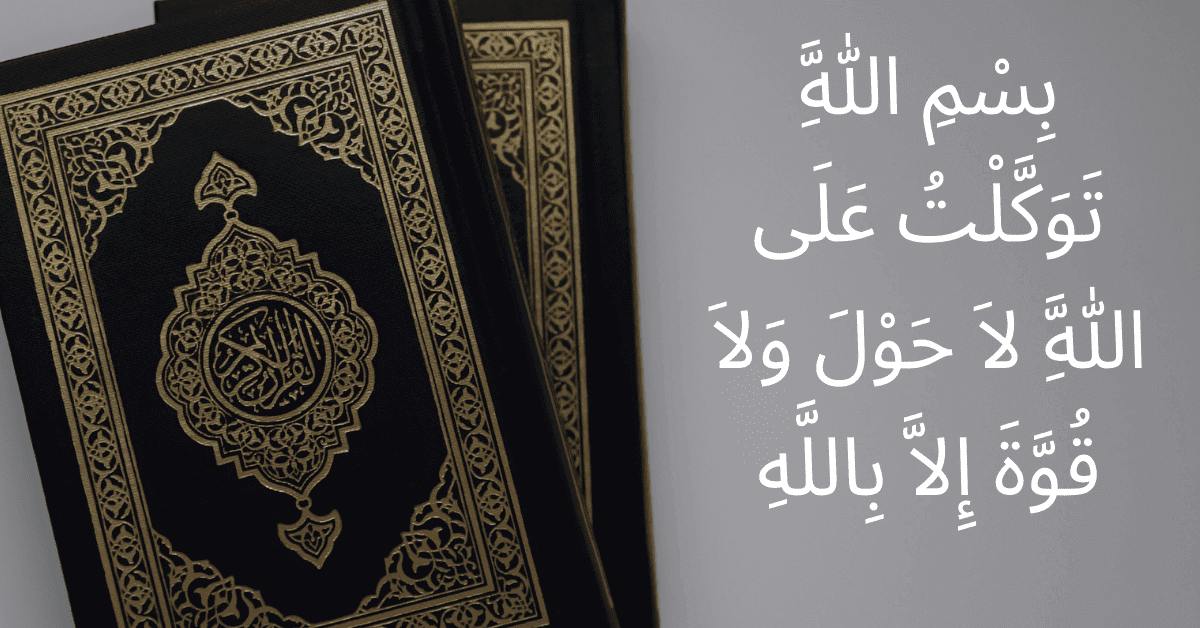 القرآن الكريم
بِسْمِ اللّٰهَِّ
تَوَكَّلْتُ عَلَى
اللّٰهَِّ لاَ حَوْلَ وَلاَ
قُوَّةَ إِلاَّ بِاللَّهِ